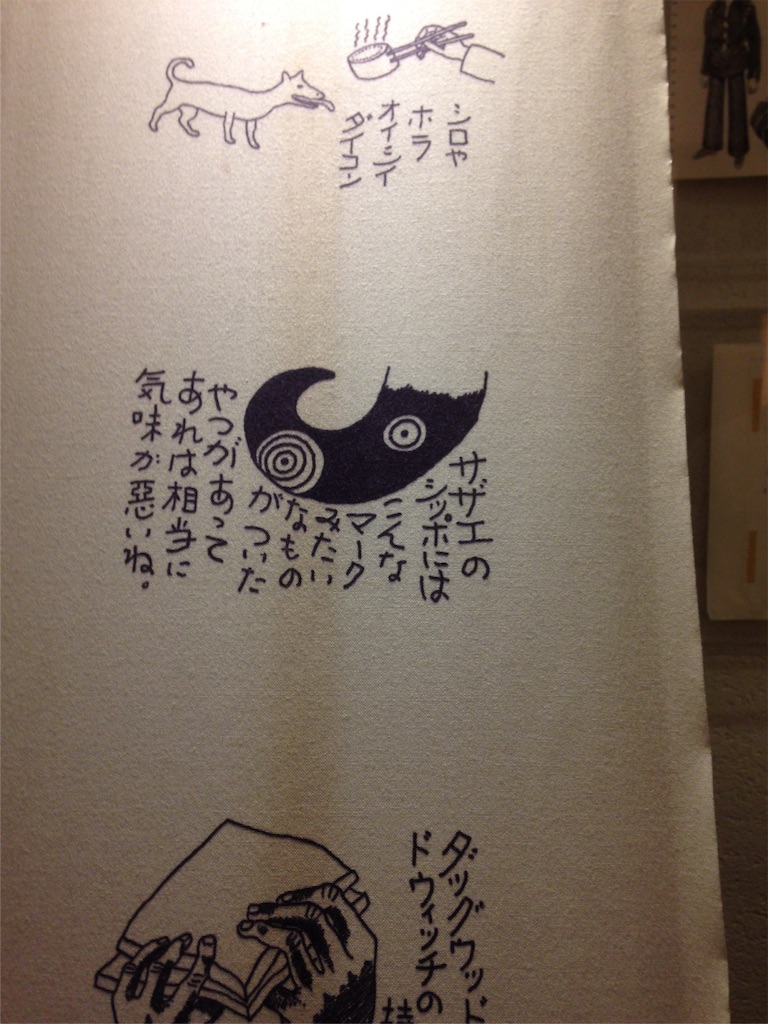 シロヤ
ホラ
オイシイ
ダイコン
サザエの
シッポには
こんな
マーク
みたい
なもの
がついた
やつがあって
あれは相当に
気味が惡いね。
ダッグウッド
ドウィッチの
持